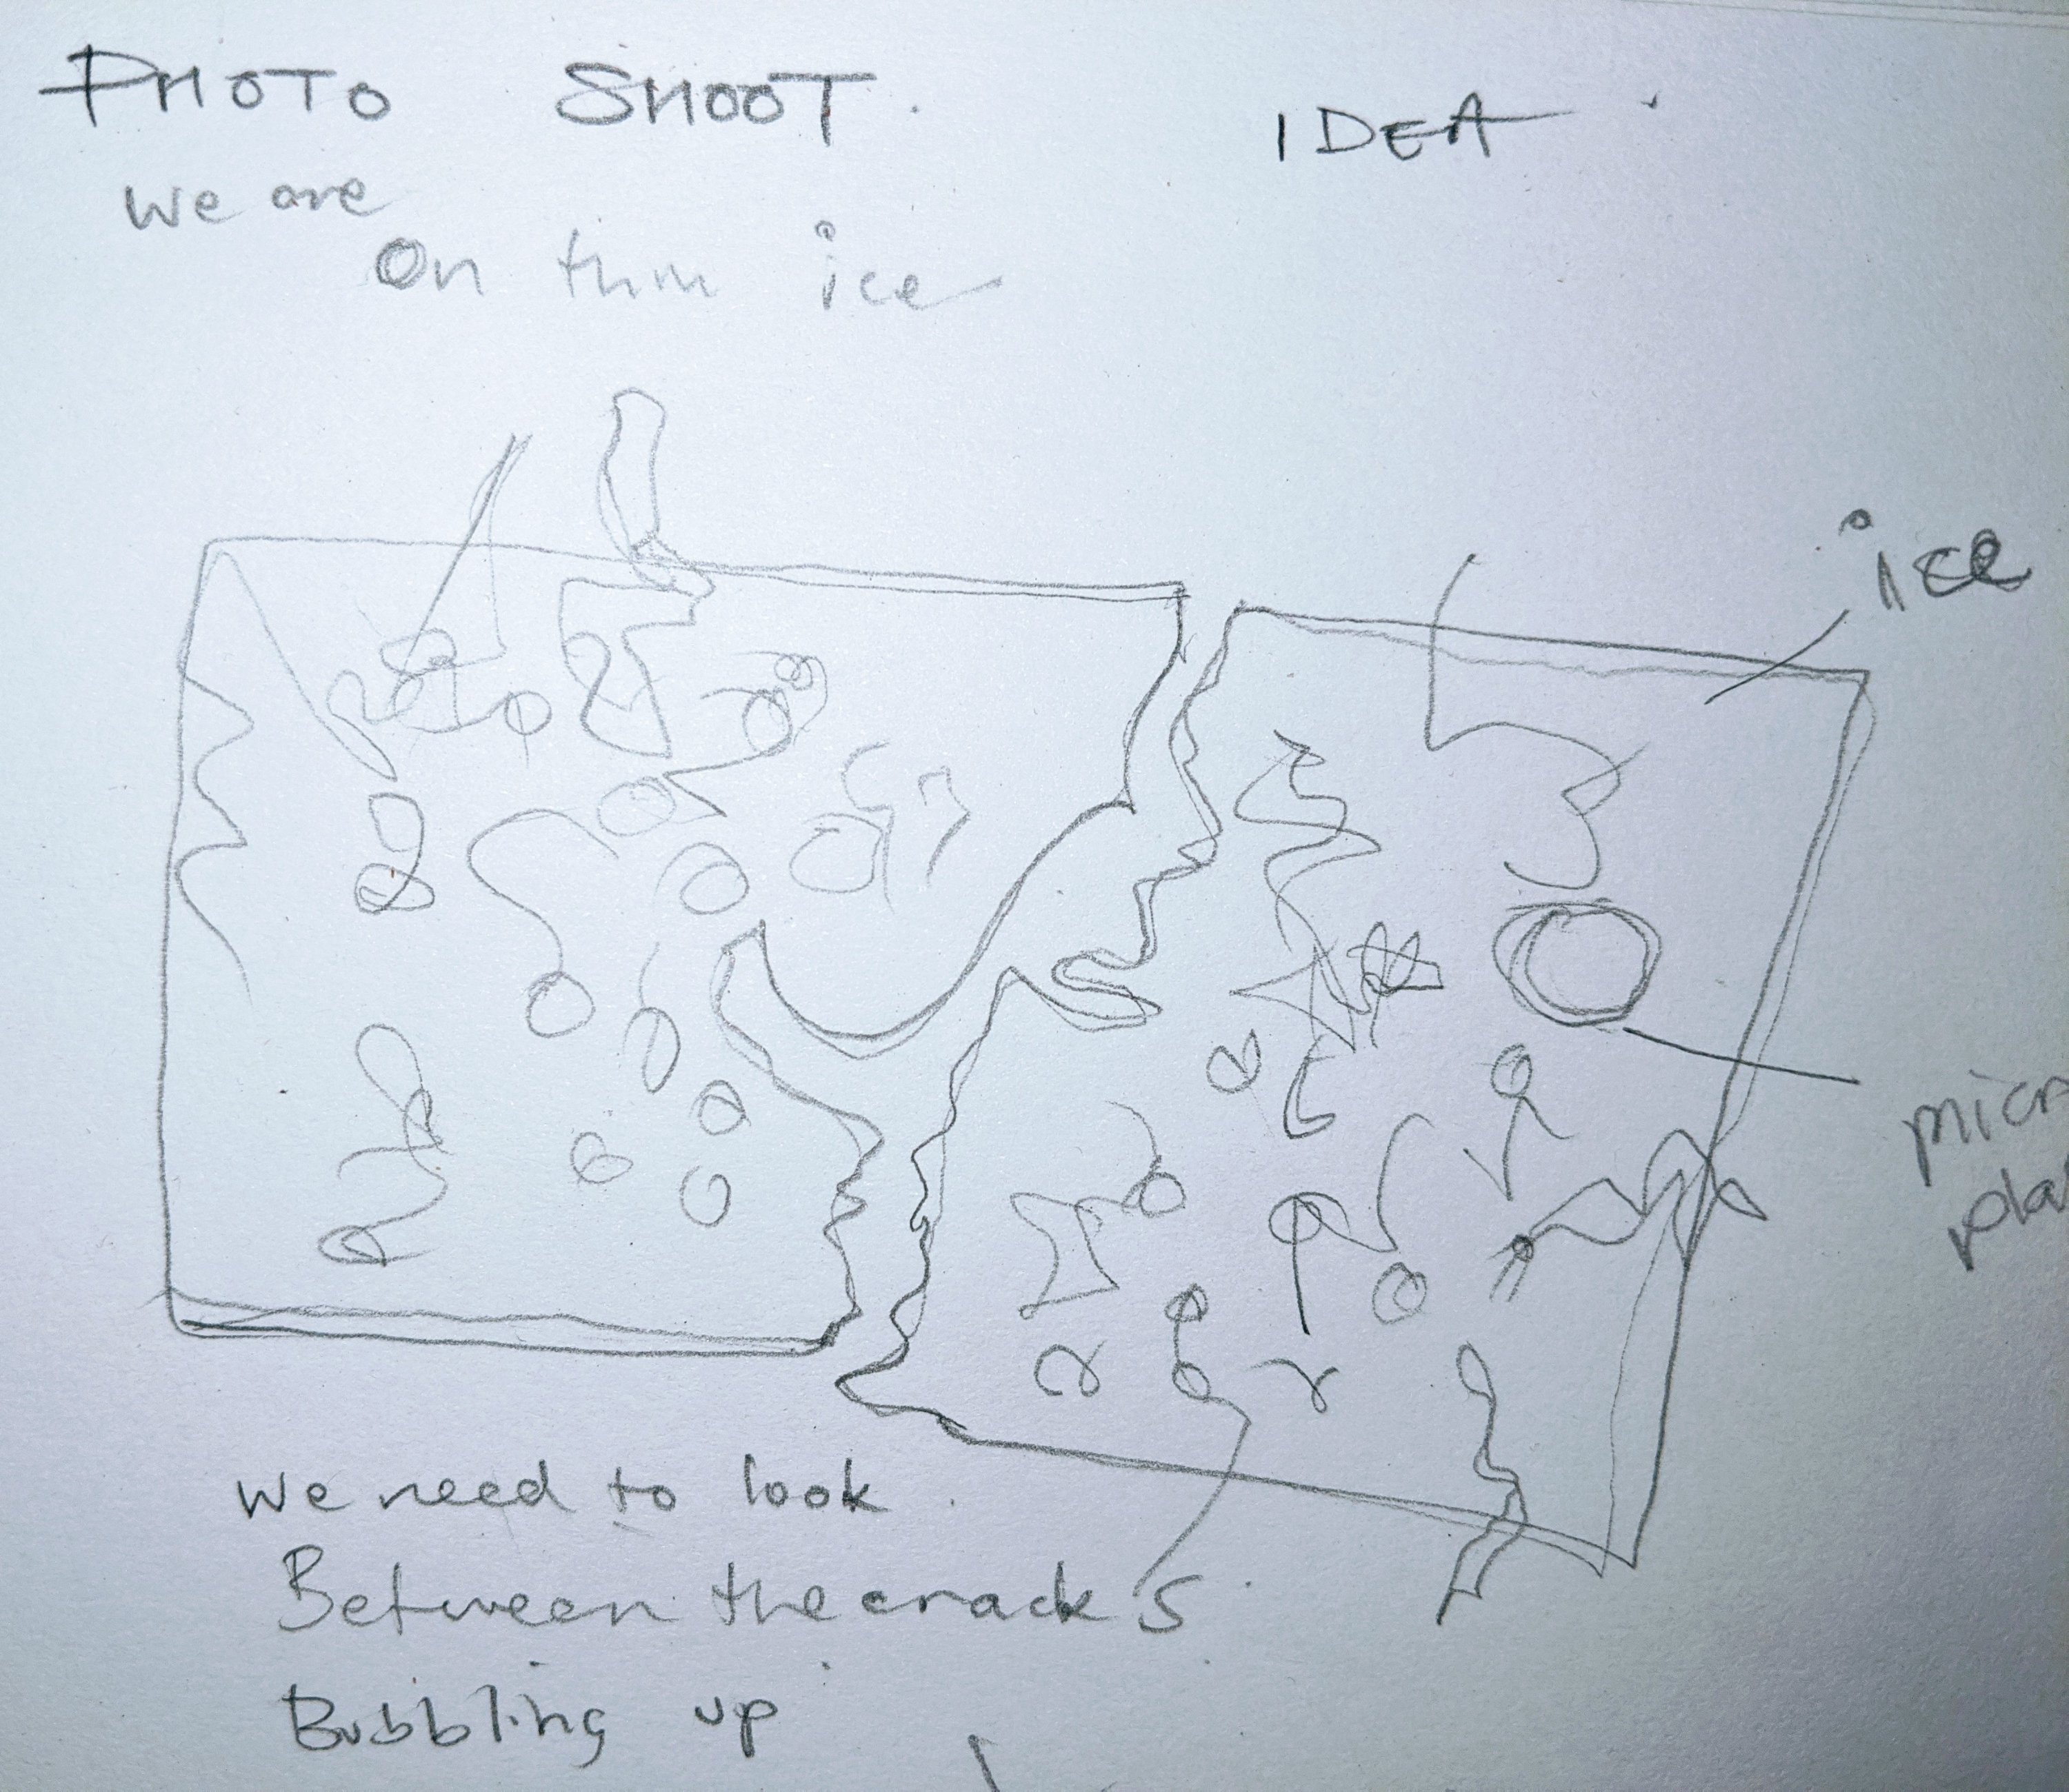 PHOTO SHOOT. IDEA
We are
On thin ice
ice
micr
pla
we need to look.
Between the cracks.
Bubbling up